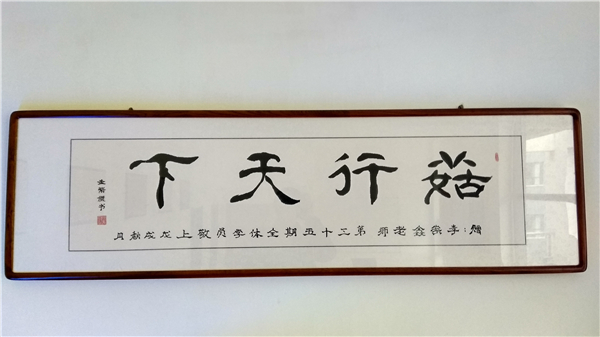 菇行天下
赠：李鑫老师 第三十五期全体学员敬上 戊戌秋月
书